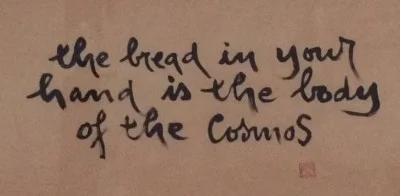 the bread in your
hand is the body
of the cosmos